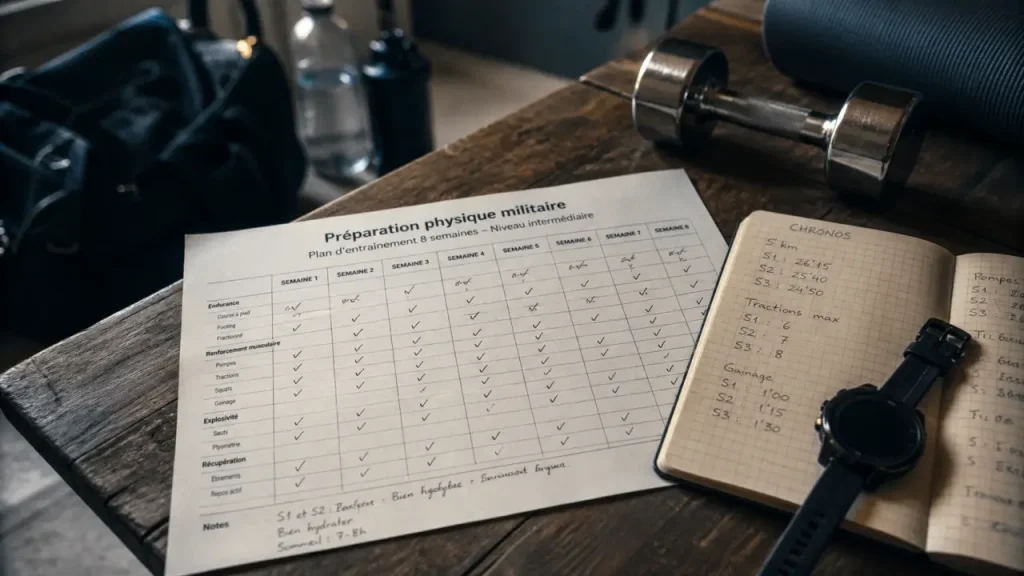 Préparation physique militaire
Plan d'entraînement 8 semaines – Niveau intermédiaire
SEMAINE 1 SEMAINE 2 SEMAINE 3 SEMAINE 4 SEMAINE 5 SEMAINE 6 SEMAINE 7 SEMAINE 8
Endurance
Course à pied
Footing
Fractionné
Renforcement musculaire
Pompes
Tractions
Squats
Gainage
Explosivité
Sauts
Récupération
Étirements
Repos actif
Notes
S1 et S2 :
Bien hydrater
Sommeil : 7-8h
CHRONOS
5 km
S1 : 26'15
S2 : 25'40
S3 : 24'50
Tractions max
S1 : 6
S2 : 7
S3 : 8
Gainage
S1 1'00
S2 1'15
S3 : 1'30
Pompes
S1 :
S2 :
S3 :